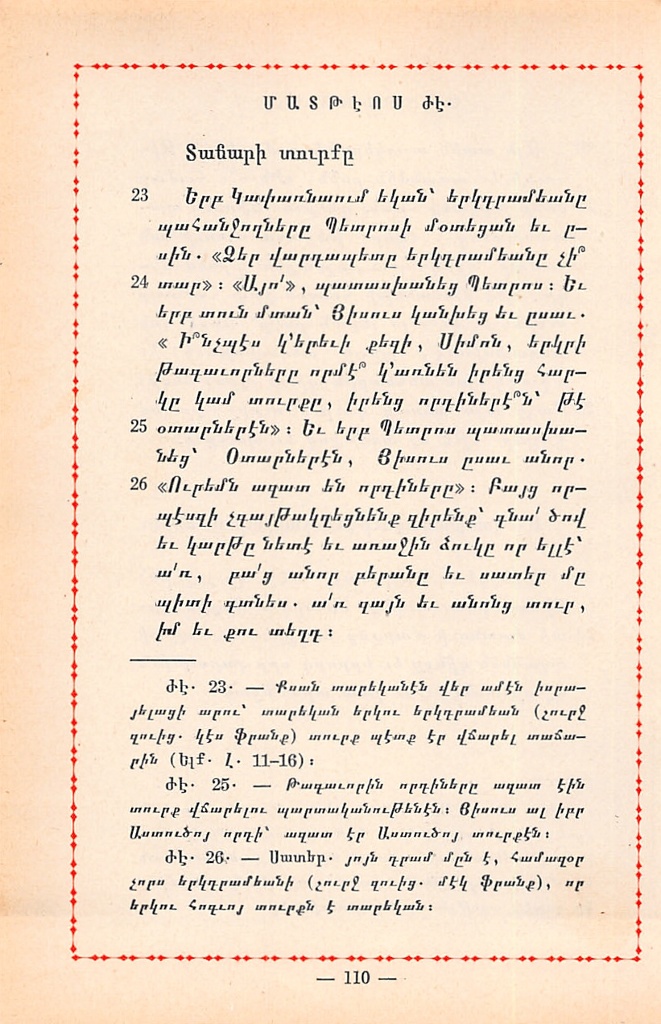 ՄԱՏԹԷՈՍ ԺԷ.
Տաճարի տուրքը
23 Երբ Կափառնաում եկան՝ երկդրամեանը
պահանջողները Պետրոսի մօտեցան եւ ը-
սին. «Ձեր վարդապետը երկդրամեանը չի՞
24 տար»: «Այո՛», պատասխանեց Պետրոս: Եւ
երբ տուն մտան՝ Յիսուս կանխեց եւ ըսաւ.
« Ի՞նչպէս կ'երեւի քեզի, Սիմոն, երկրի
թագաւորները որմէ՞ կ'առնեն իրենց հար-
կը կամ տուրքը, իրենց որդիներէ՞ն՝ թէ
25 օտարներէն»: Եւ երբ Պետրոս պատասխա-
նեց՝ Օտարներէն, Յիսուս ըսաւ անոր.
26 «Ուրեմն ազատ են որդիները»: Բայց որ-
պէսզի չգայթակղեցնենք զիրենք՝ գնա՛ ծով
եւ կարթը նետէ եւ առաջին ձուկը որ ելլէ՝
ա՛ռ, բա՛ց անոր բերանը եւ սատեր մը
պիտի գտնես. ա՛ռ զայն եւ անոնց տուր,
իմ եւ քու տեղդ:
ԺԷ. 23. — Քսան տարեկանէն վեր ամէն իսրա-
յելացի արու՝ տարեկան երկու երկդրամեան (չուրջ
զուից. կէս ֆրանք) տուրք պէտք էր վճարել տաճա-
րին (Ելք. Լ. 11-16):
ԺԷ. 25. — Թագաւորին որդիները ազատ էին
տուրք վճարելու պարտականութենէն: Յիսուս ալ իբր
Աստուծոյ որդի՝ ազատ էր Աստուծոյ տուրքէն:
ԺԷ. 26. — Սատեր. յոյն դրամ մըն է, համազօր
չորս երկդրամեանի (չուրջ զուից. մէկ ֆրանք), որ
երկու հոգւոյ տուրքն է տարեկան:
— 110 —